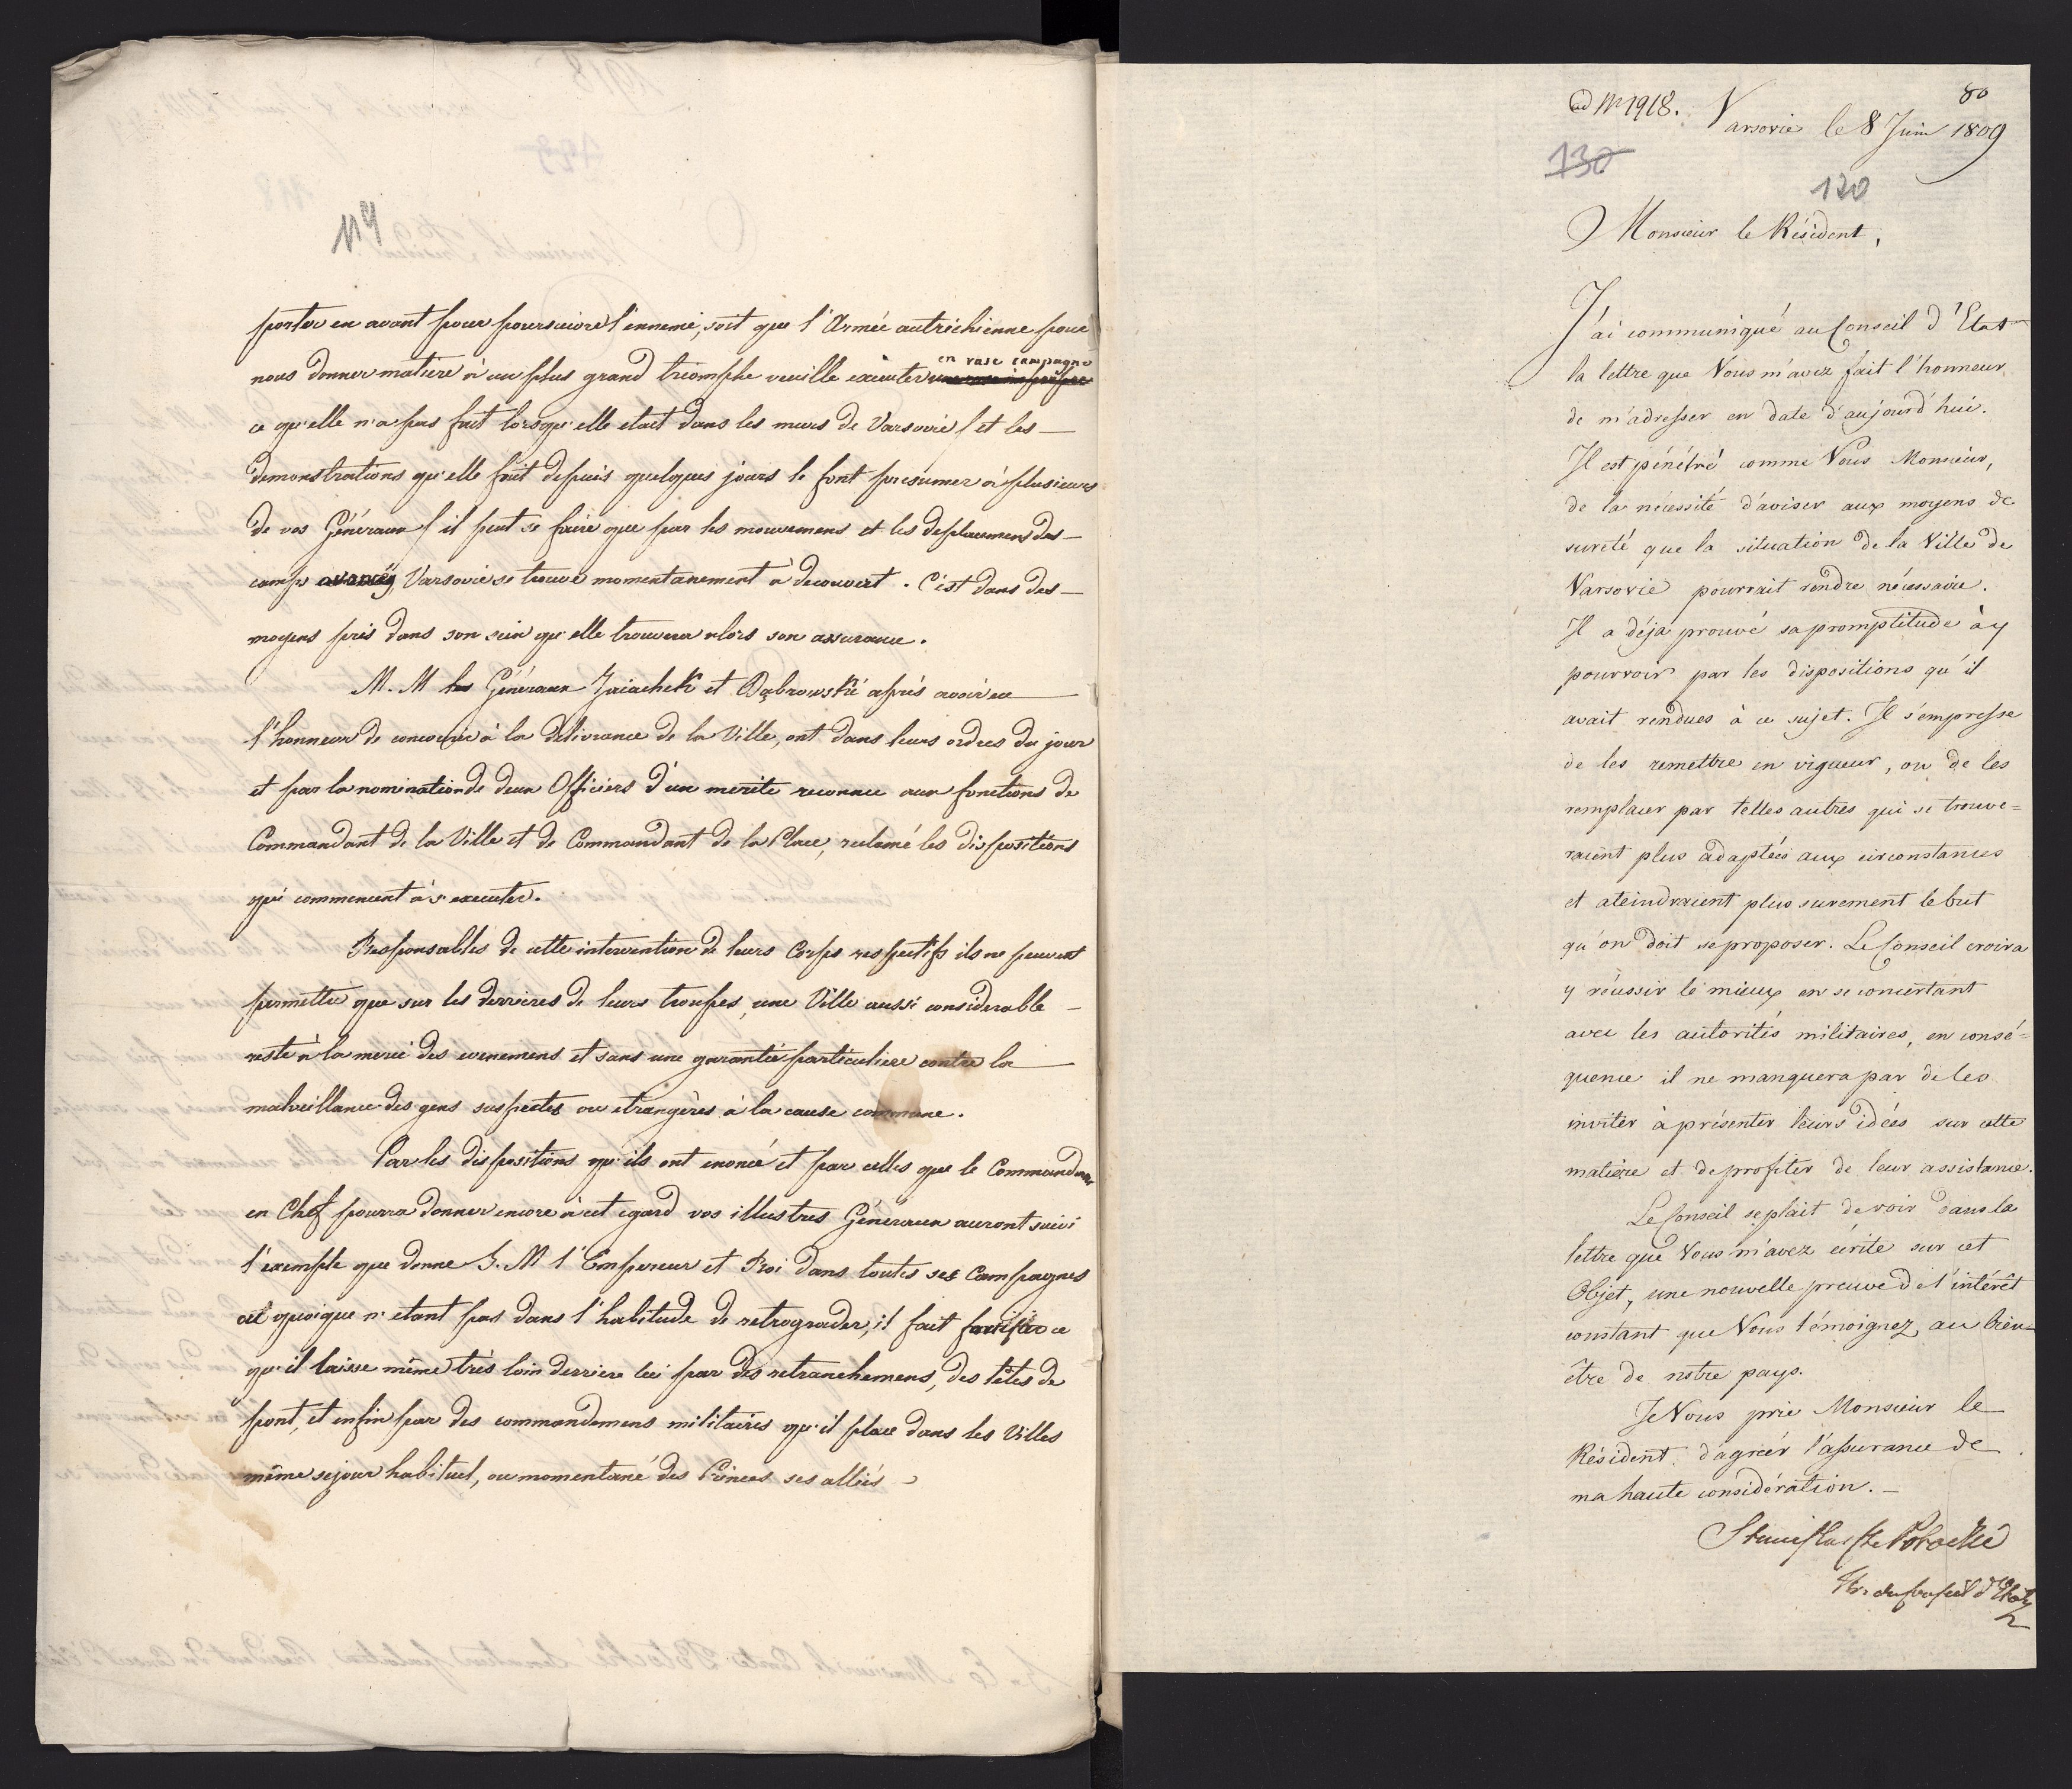 119
porter en avant pour poursuivre l'ennemi, soit que l'Armée autrichienne pour
en rase campagne
nous donner matiere à un plus grand triomphe veuille exécuter
ce qu'elle n'a pas fait lorsqu'elle etait dans les murs de Varsovie / et les
demonstrations qu'elle fait depuis quelques jours le font présumer à plusieurs
de vos Généraux / il peut se faire que par les mouvemens et les deplacemens des
camps avancés, Varsovie se trouve momentanement à decouvert. C'est dans des
moyens pris dans son sein qu'elle trouvera alors son assurance.
M. M les Généraux Zaiachek et Dąbrowski après avoir eu
l'honneur de concourir à la delivrance de la Ville, ont dans leurs ordres du jour
et par la nomination de deux Officiers d'un merite reconnu aux fonctions de
Commandant de la Ville et de Commandant de la Place, reclamé les dispositions
qui commencent à s'executer.
Responsables de cette intervention de leurs Corps respectifs ils ne peuvent
permettre que sur les derrieres de leurs troupes, une Ville aussi considerable
reste à la merci des evenemens et sans une garantie particuliere contre la
malveillance des gens suspectes ou etrangères à la cause commune.
Par les dispositions qu'ils ont enoncé et par celles que le Commandant
en Chef pourra donner encore à cet egard vos illustres Généraux auront suivi
l'exemple que donne S. M l'Empereur et Roi dans toutes ses Campagnes
où quoique n'etant pas dans l'habitude de retrograder, il fait fortifier ce
qu'il laisse même très loin derriere lui par des retranchemens, des têtes de
pont, et enfin par des commandemens militaires qu'il place dans les Villes
même sejour habituel, ou momentané des Princes ses alliés
80
ad Nr 1918. Varsovie le 8 Juin 1809
130
120
Monsieur le Résident,
J'ai communiqué au Conseil d'Etat
la lettre que Vous m'avez fait l'honneur
de m'adresser en date d'aujourd'hui.
Il est pénétré comme Vous Monsieur,
de la nécessité d'aviser aux moyens de
sureté que la situation de la Ville de
Varsovie pourrait rendre nécessaire.
Il a déja prouvé sa promptitude à y
pourvoir par les dispositions qu'il
avait rendues à ce sujet. Il s'empresse
de les remettre en vigueur, ou de les
remplacer par telles autres qui se trouve=
raient plus adaptées aux circonstances
et ateindraient plus surement le but
qu'on doit se proposer. Le Conseil croira
y réussir le mieux en se concertant
avec les autorités militaires, en consé=
quence il ne manquera par de les
inviter à présenter leurs idées sur cette
matière et de profiter de leur assistance.
Le Conseil se plait de voir dans la
lettre que Vous m'avez écrite sur cet
Objet, une nouvelle preuve de l'intérêt
constant que Vous témoignez au bien-
être de notre pays.
Je Vous prie Monsieur le
Résident d'agréer l'assurance de
ma haute considération.
Stanislas Cte Potocki
Pr. du Conseil d'Etat